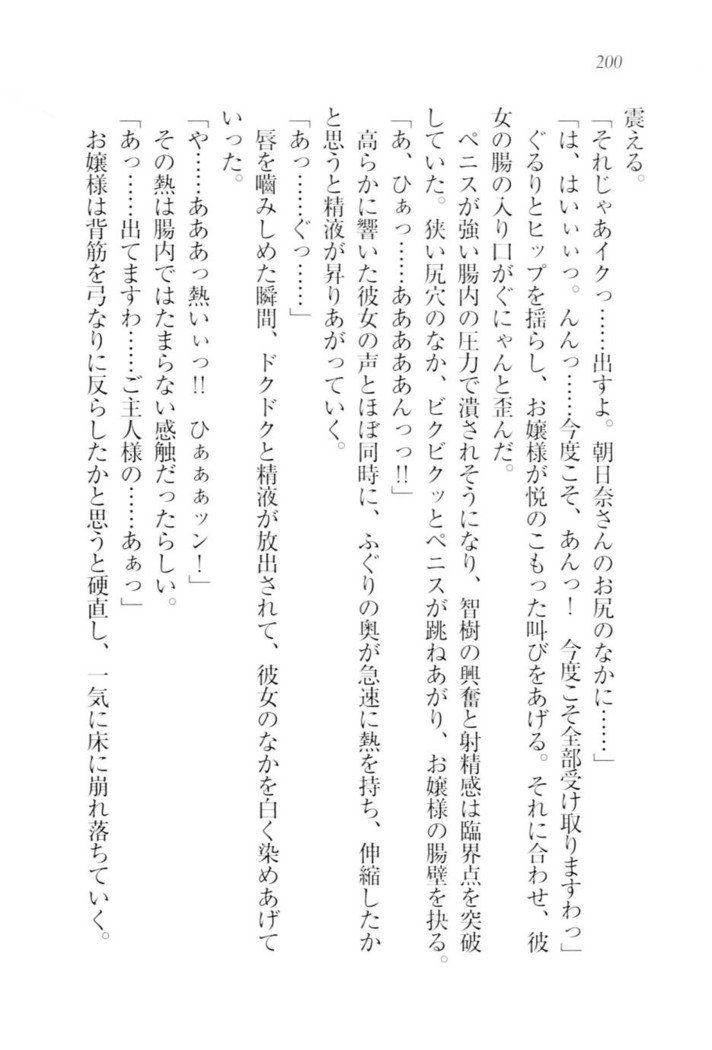 200
震える。
「それじゃあイクっ……出すよ。朝日奈さんのお尻のなかに……」
「は、はいぃぃっ。んんっ……今度こそ、あんっ！　今度こそ全部受け取りますわっ」
ぐるりとヒップを揺らし、お嬢様が悦のこもった叫びをあげる。それに合わせ、彼
女の腸の入り口がぐにゃんと歪んだ。
ペニスが強い腸内の圧力で潰されそうになり、智樹の興奮と射精感は臨界点を突破
していた。狭い尻穴のなか、ビクビクッとペニスが跳ねあがり、お嬢様の腸壁を抉る。
「あ、ひぁっ……ああああぁんっっ!!」
高らかに響いた彼女の声とほぼ同時に、ふぐりの奥が急速に熱を持ち、伸縮したか
と思うと精液が昇りあがっていく。
「あっ……ぐっ……」
唇を嚙みしめた瞬間、ドクドクと精液が放出されて、彼女のなかを白く染めあげて
いった。
「や……あああっ熱いぃっ!!　ひぁぁぁッン！」
その熱は腸内ではたまらない感触だったらしい。
「あっ……出てますわ……ご主人様の……あぁっ」
お嬢様は背筋を弓なりに反らしたかと思うと硬直し、一気に床に崩れ落ちていく。